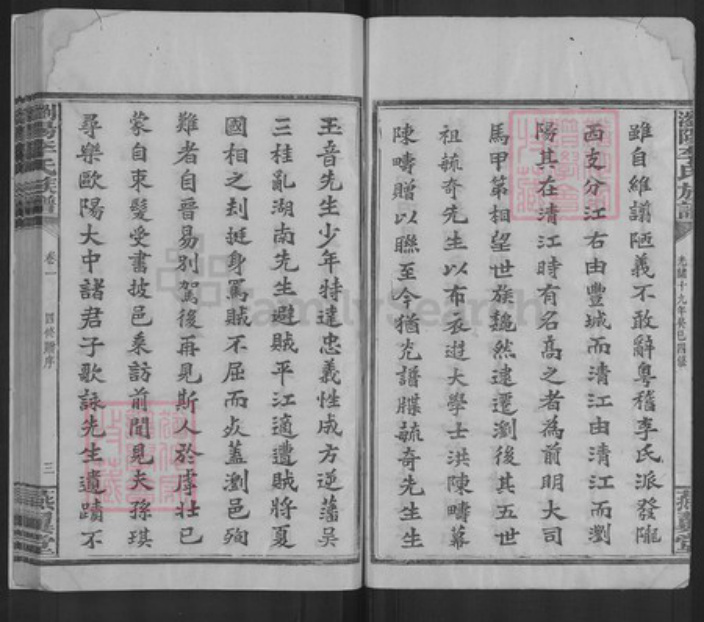 瀏陽李氏族譜
光緒十九年癸巳四修
雖自維譾陋義不敢辭粵稽李氏派發隴
西支分江右由豐城而清江由清江而瀏
陽其在清江時有名高之者為前明大司
馬甲第相望世族巍然逮遷瀏後其五世
祖毓奇先生以布衣遊大學士洪陳疇幕
陳疇贈以聯至今猶光譜牒毓奇先生生
玉音先生少年特達忠義性成方逆藩吳
三桂亂湖南先生避賊平江適遭賊將夏
國相之刦挺身罵賊不屈而死蓋瀏邑殉
難者自晉易別駕後再見斯人於虖壯已
蒙自束髮受書披邑乘訪前聞見夫孫琪
尋樂歐陽大中諸君子歌詠先生遺蹟不
瀏陽李氏族譜
卷一
四修贈序
三
FamilySearch